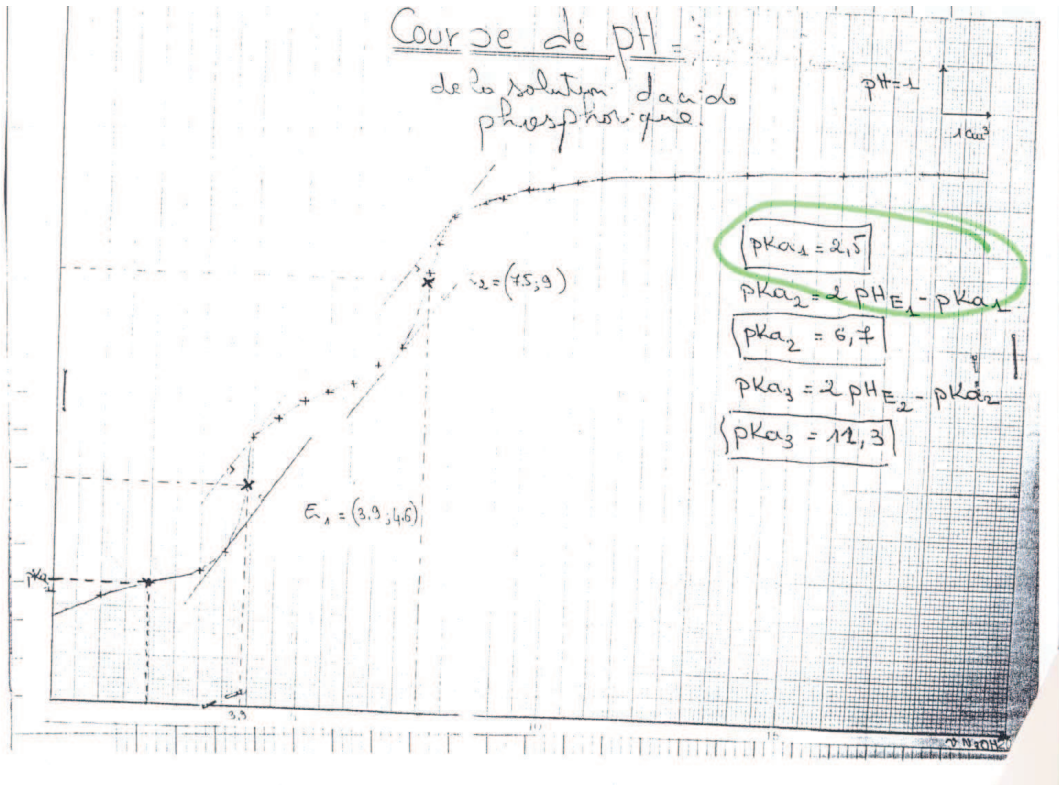 Courbe de pH =
de la solution d'acide
phosphorique.
pH=1
1cm³
pKa₁ = 2,5
pKa₂ = 2 pH_E₁ - pKa₁
pKa₂ = 6,7
pKa₃ = 2 pH_E₂ - pKa₂
pKa₃ = 11,3
₂ = (7.5; 9)
E₁ = (3.9; 4.6)
pKa₁
3,9
10
15